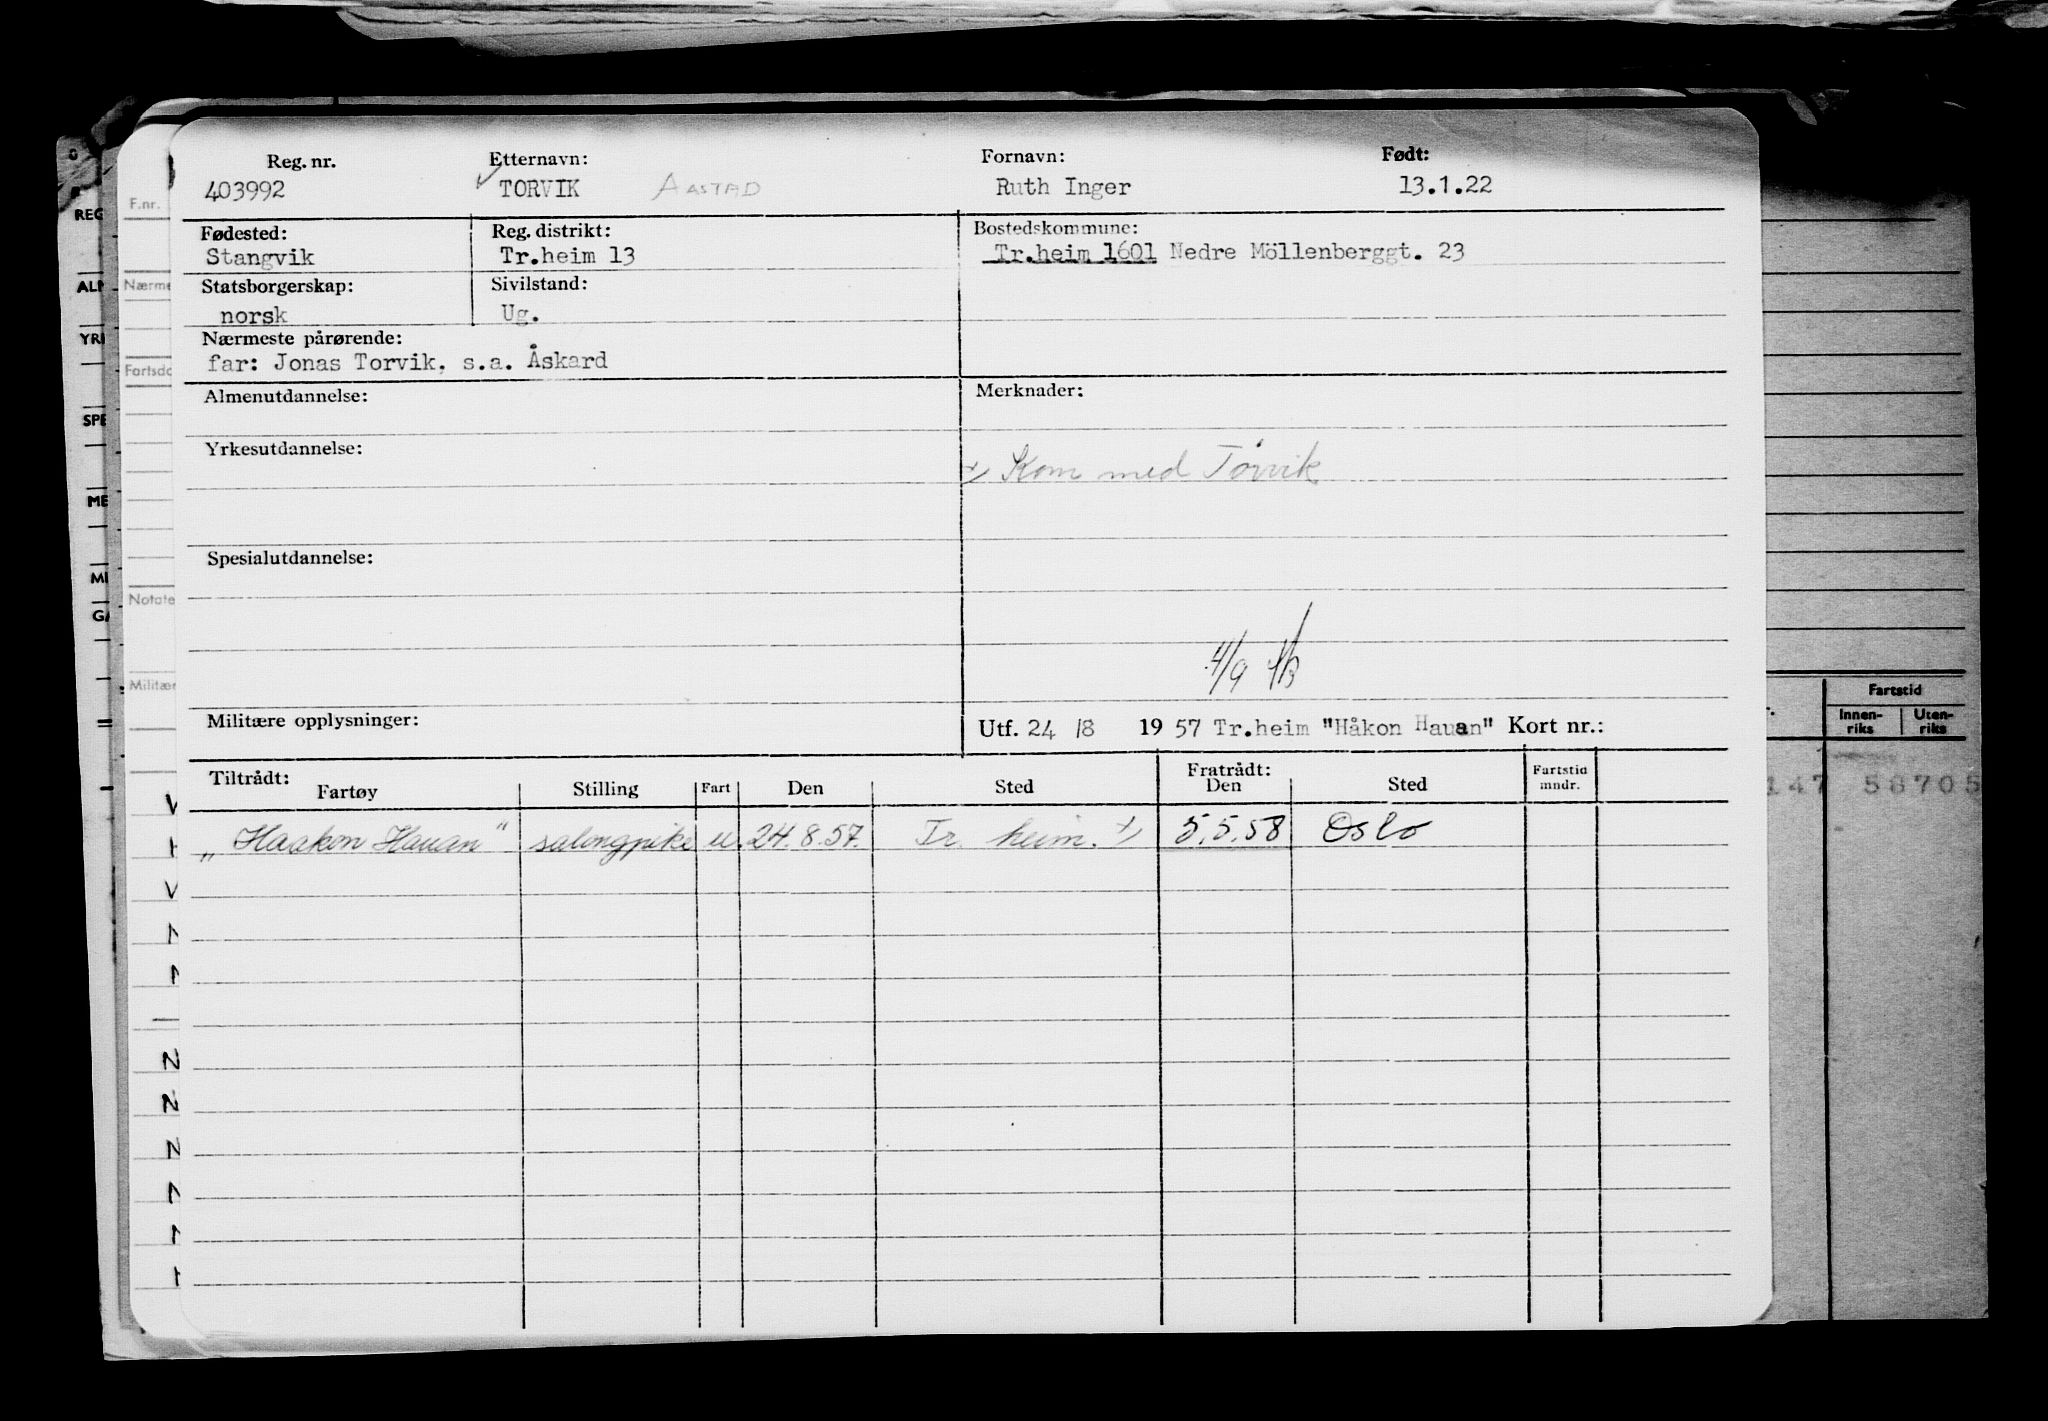 Reg. nr. Etternavn: Fornavn: Født:
403992 TORVIK AASTAD Ruth Inger 13.1.22
Fødested: Reg. distrikt: Bostedskommune:
Stangvik Tr.heim 13 Tr.heim 1601 Nedre Möllenberggt. 23
Statsborgerskap: Sivilstand:
norsk Ug.
Nærmeste pårørende:
far: Jonas Torvik, s.a. Åskard
Almenutdannelse: Merknader:
Yrkesutdannelse:
Kom med Torvik
Spesialutdannelse:
4/9
Militære opplysninger: Utf. 24 /8 19 57 Tr.heim "Håkon Hauan" Kort nr.:
Tiltrådt: Fratrådt:
Fartøy Stilling Fart Den Sted Den Sted Fartstid mndr.
„Haakon Hauan" salongpike u. 24.8.57. Tr. heim. 5.5.58 Oslo
F.nr.
Nærme
Fartsdo
Notate
Militær
REG
ALM
YR
SPE
ME
MI
GA
Fartstid
Innen-
riks
Uten-
riks
147 58705